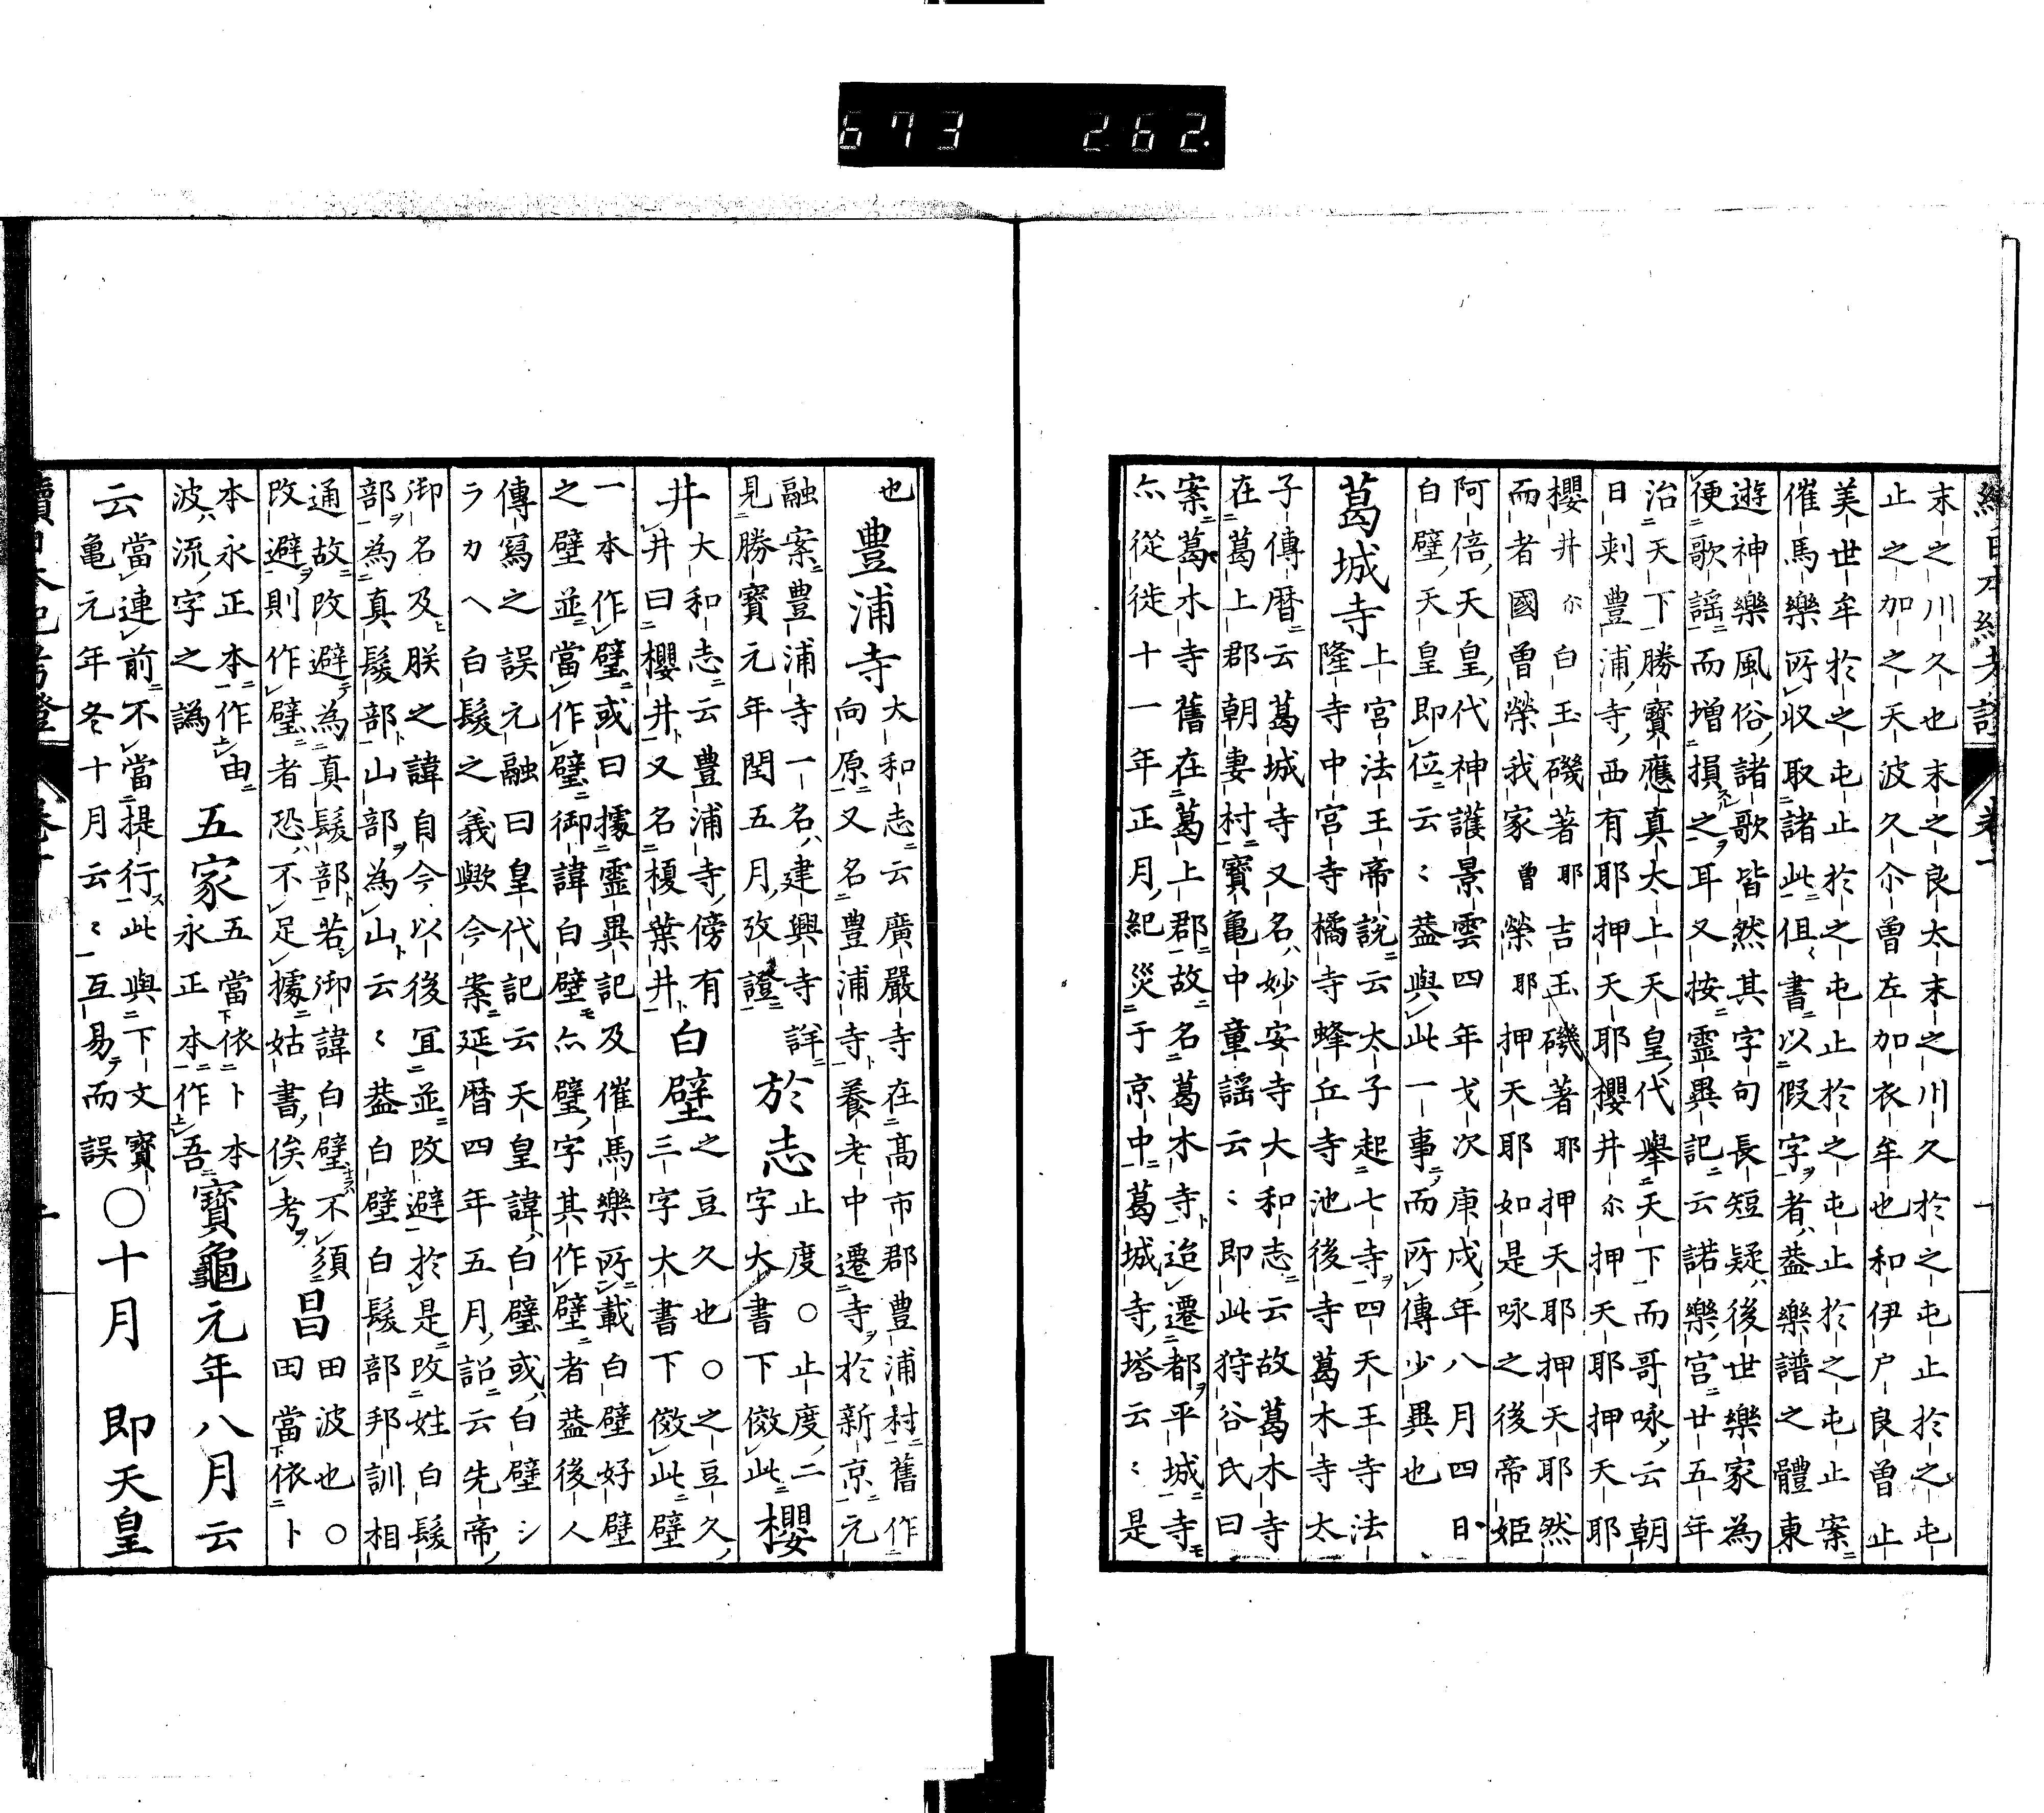 673 262.
末之川久也末之良太末之川久於之屯止於之屯
止之加之天波久尒曽左加衣牟也和伊户良曽止
美世牟於之屯止於之屯止於之屯止於之屯止案
催馬樂所収取諸此但書以假字者盖樂譜之體東
遊神樂風俗諸歌皆然其字句長短疑後世樂家為
便歌謡而増損之耳又按霊異記云諾樂宮廿五年
治天下勝寳應真太上天皇代舉天下而哥咏云朝
日刺豊浦寺西有耶押天耶櫻井尒押天耶押天耶
櫻井尒白玉磯著耶吉玉磯著耶押天耶押天耶然
而者國曽榮我家曽榮耶押天耶如是咏之後帝姫
阿倍天皇代神護景雲四年戈次庚戌年八月四日
白壁天皇即位云〻盖與此一事而所傳少異也
葛城寺
上宮法王帝説云太子起七寺四天王寺法
隆寺中宮寺橘寺蜂丘寺池後寺葛木寺太
子傳暦云葛城寺又名妙安寺大和志云故葛木寺
在葛上郡朝妻村寳亀中童謡云〻即此狩谷氏曰
案葛木寺舊在葛上郡故名葛木寺迨遷都平城寺
亦從徙十一年正月紀災于京中葛城寺塔云〻是
也
豊浦寺
大和志云廣嚴寺在髙市郡豊浦村舊作
向原又名豊浦寺養老中遷寺於新京元
融案豊浦寺一名建興寺詳
見勝寳元年閏五月攷證
於志
止度○止度二
字大書下倣此
櫻
井
大和志云豊浦寺傍有
井曰櫻井又名榎葉井
白壁
之豆久也○之豆久
三字大書下倣此壁
一本作璧或曰據霊異記及催馬樂所載白壁好壁
之壁並當作璧御諱白壁亦璧字其作壁者盖後人
傳寫之誤元融曰皇代記云天皇諱白璧或白壁シ
ラカヘ白髮之義歟今案延暦四年五月詔云先帝
御名及朕之諱自今以後宜並改避於是改姓白髮
部為真髮部山部為山云〻盖白壁白髮部邦訓相
通故改避為真髮部若御諱白璧不須
改避則作璧者恐不足據姑書俟考
昌
田波也○
田當依卜
本永正本作由
波流字之譌
五家
五當依卜本
永正本作吾
寳龜元年八月云
云
當連前不當提行此與下文寳
亀元年冬十月云〻互易而誤
○十月　即天皇